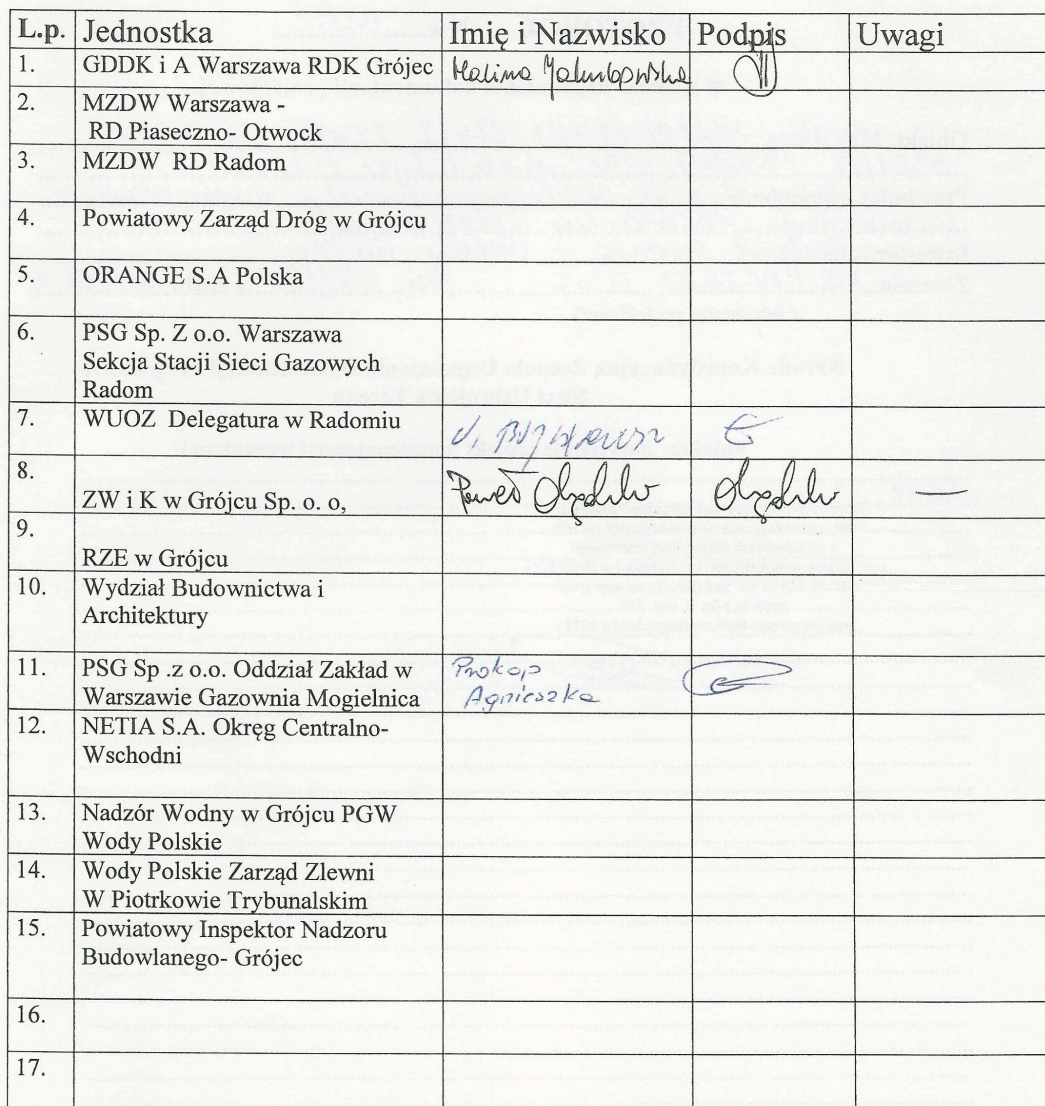 L.p. Jednostka Imię i Nazwisko Podpis Uwagi
1. GDDK i A Warszawa RDK Grójec Halina
2. MZDW Warszawa -
RD Piaseczno- Otwock
3. MZDW RD Radom
4. Powiatowy Zarząd Dróg w Grójcu
5. ORANGE S.A Polska
6. PSG Sp. Z o.o. Warszawa
Sekcja Stacji Sieci Gazowych
Radom
7. WUOZ Delegatura w Radomiu
8.
ZW i K w Grójcu Sp. o. o, Paweł
9.
RZE w Grójcu
10. Wydział Budownictwa i
Architektury
11. PSG Sp .z o.o. Oddział Zakład w Prokop
Warszawie Gazownia Mogielnica Agnieszka
12. NETIA S.A. Okręg Centralno-
Wschodni
13. Nadzór Wodny w Grójcu PGW
Wody Polskie
14. Wody Polskie Zarząd Zlewni
W Piotrkowie Trybunalskim
15. Powiatowy Inspektor Nadzoru
Budowlanego- Grójec
16.
17.